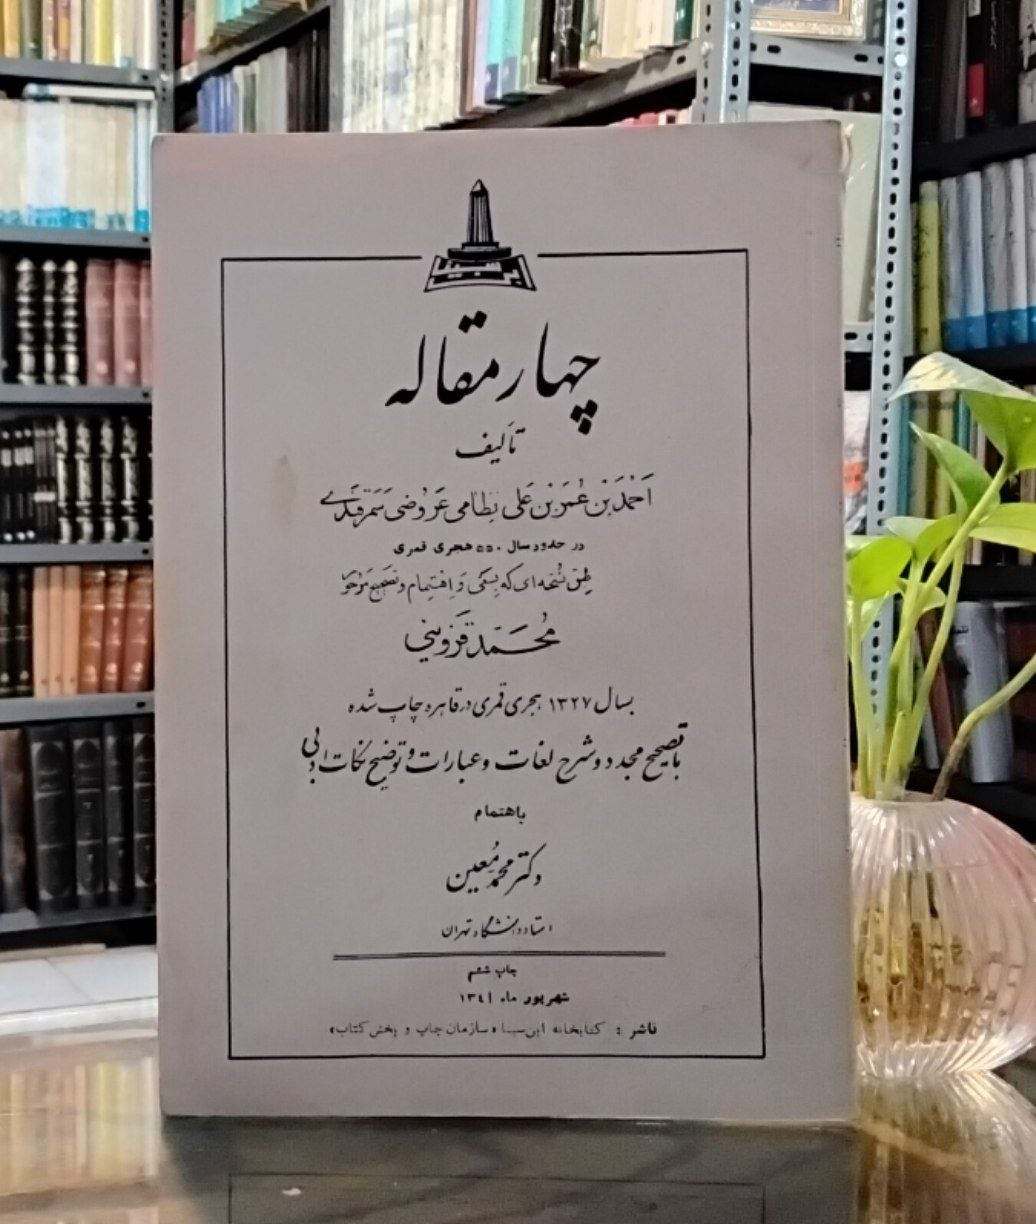 ابن سینا
چهار مقاله
تألیف
اَحمَد بَن عُمَر بَن عَلی نظامی عَروُضی سَمَرقَندے
در حدود سال ۵۵۰ هجری قمری
طبق نُسخه ای که بِسَعی وَ اِهتِمام وَ تصَحیحِ مَرحُوم
مُحَمَّد قَزوینی
بسال ۱۳۲۷ هجری قمری در قاهره چاپ شده
با تصحیح مجدد و شرح لغات و عبارات و توضیح نکات ادبی
باهتمام
دکتر محمّد مُعین
استاد دانشگاه تهران
چاپ ششم
شهریور ماه ۱۳٤۱
ناشر : کتابخانه ابن‌سینا «سازمان چاپ و پخش کتاب»